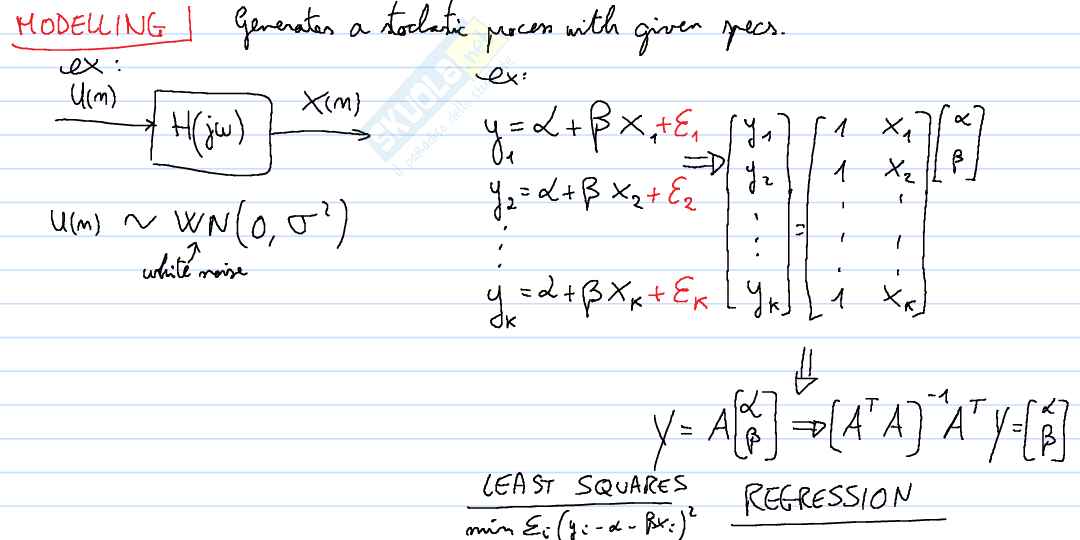 MODELLING Generates a stochastic process with given specs.
ex:
U(n) H(jω) X(n)
U(n) ~ WN(0, σ²)
white noise
ex:
y₁ = α + β x₁ + ε₁
y₂ = α + β x₂ + ε₂
⋮
yₖ = α + β xₖ + εₖ
⇒ [y₁ y₂ ⋮ yₖ] = [1 x₁; 1 x₂; ⋮ ⋮; 1 xₖ] [α β]
⇓
Y = A [α β] ⇒ [AᵀA]⁻¹ Aᵀ Y = [α β]
LEAST SQUARES REGRESSION
min Σᵢ (yᵢ - α - βxᵢ)²
SKUOLA